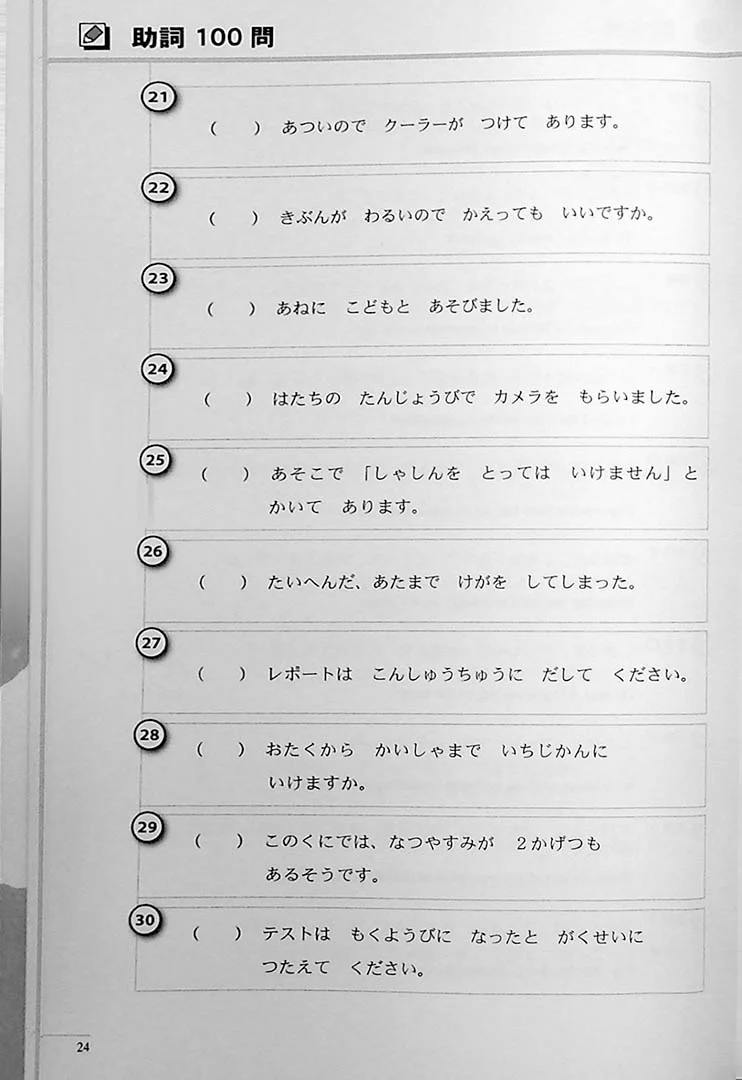 助詞 100 問
21
( ) あついので クーラーが つけて あります。
22
( ) きぶんが わるいので かえっても いいですか。
23
( ) あねに こどもと あそびました。
24
( ) はたちの たんじょうびで カメラを もらいました。
25
( ) あそこで 「しゃしんを とっては いけません」と
かいて あります。
26
( ) たいへんだ、あたまで けがを してしまった。
27
( ) レポートは こんしゅうちゅうに だして ください。
28
( ) おたくから かいしゃまで いちじかんに
いけますか。
29
( ) このくにでは、なつやすみが 2かげつも
あるそうです。
30
( ) テストは もくようびに なったと がくせいに
つたえて ください。
24